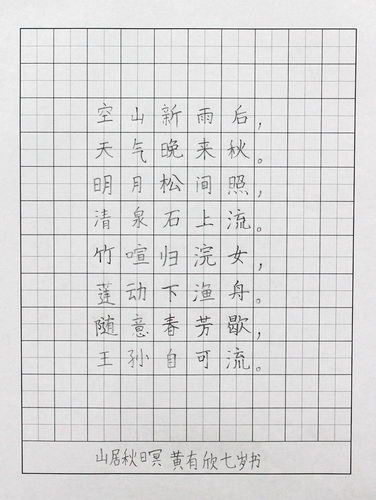 空山新雨后，
天气晚来秋。
明月松间照，
清泉石上流。
竹喧归浣女，
莲动下渔舟。
随意春芳歇，
王孙自可流。
山居秋暝 黄有欣七岁书